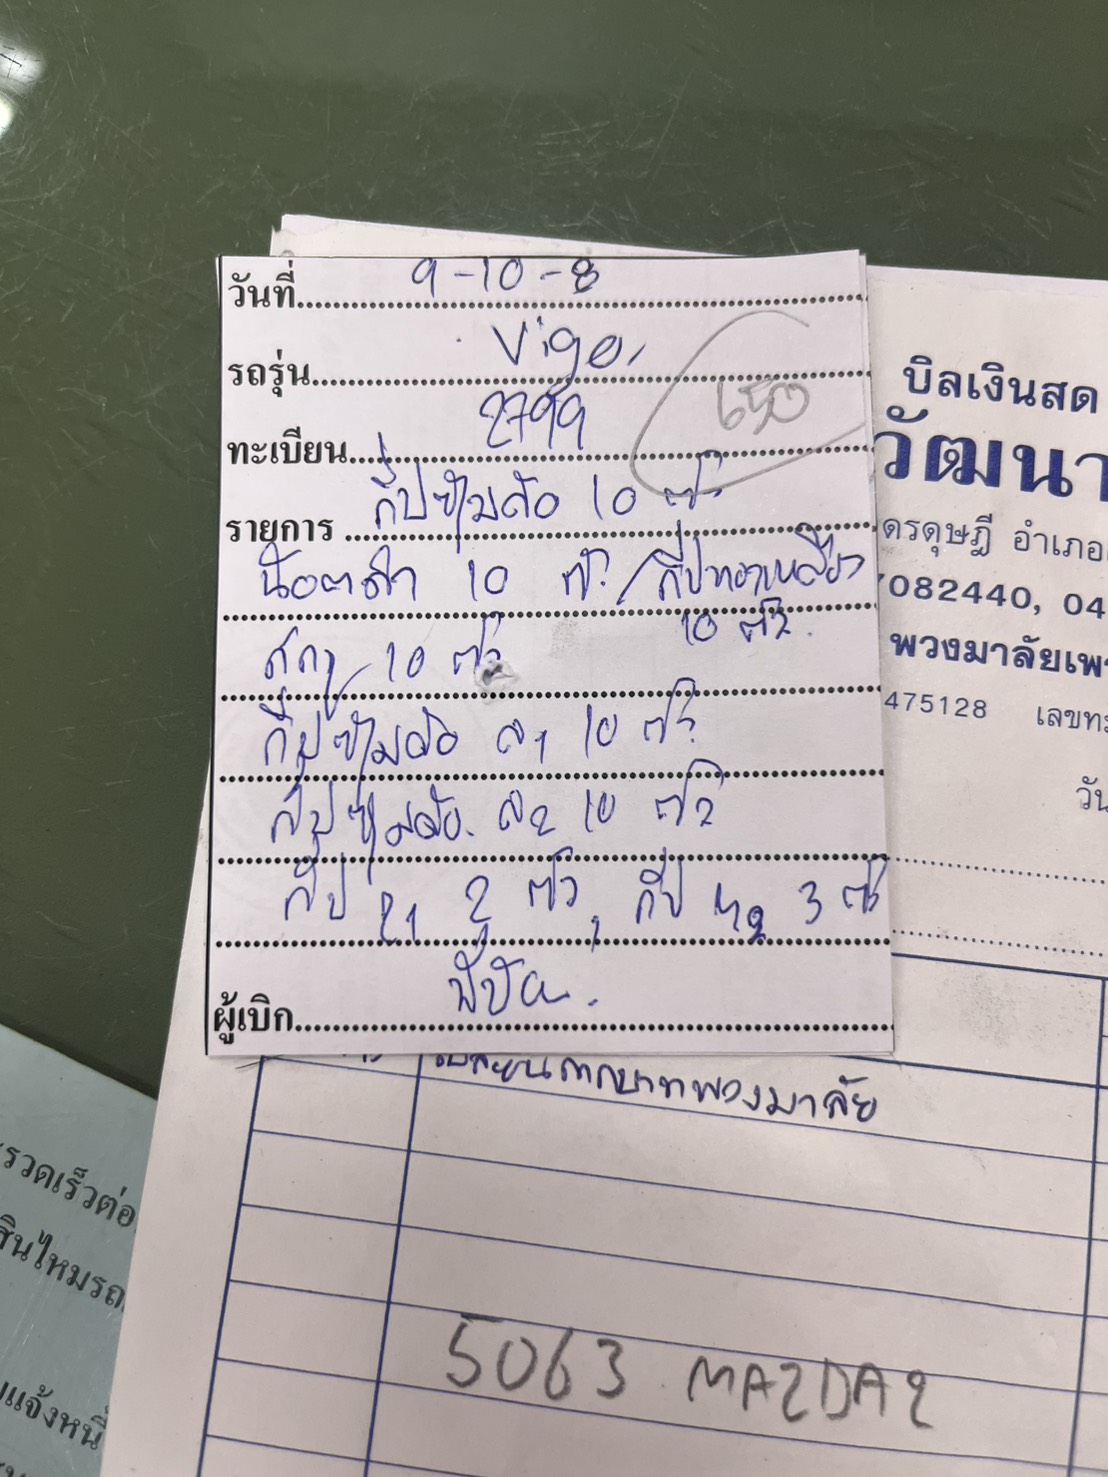 วันที่ 9-10-8
รถรุ่น Vigo
650
ทะเบียน 2799
รายการ กิ๊ปซุ้มล้อ 10 ตัว
น๊อตดำ 10 ตัว /กิ๊ปทองเหลือง
10 ตัว
สกรู 10 ตัว
กิ๊ปซุ้มล้อ ล1 10 ตัว
กิ๊ปซุ้มล้อ ล2 10 ตัว
กิ๊ป 21 2 ตัว, กิ๊ป 3 ตัว
ผู้เบิก
บิลเงินสด
วัฒนา
ดรดุษฎี อำเภอ
082440, 04
พวงมาลัยเพ
475128 เลขท
วัน
พวงมาลัย
5063 MAZDA2
รวดเร็วต่อ
สินไหมรถ
แจ้งหนี้